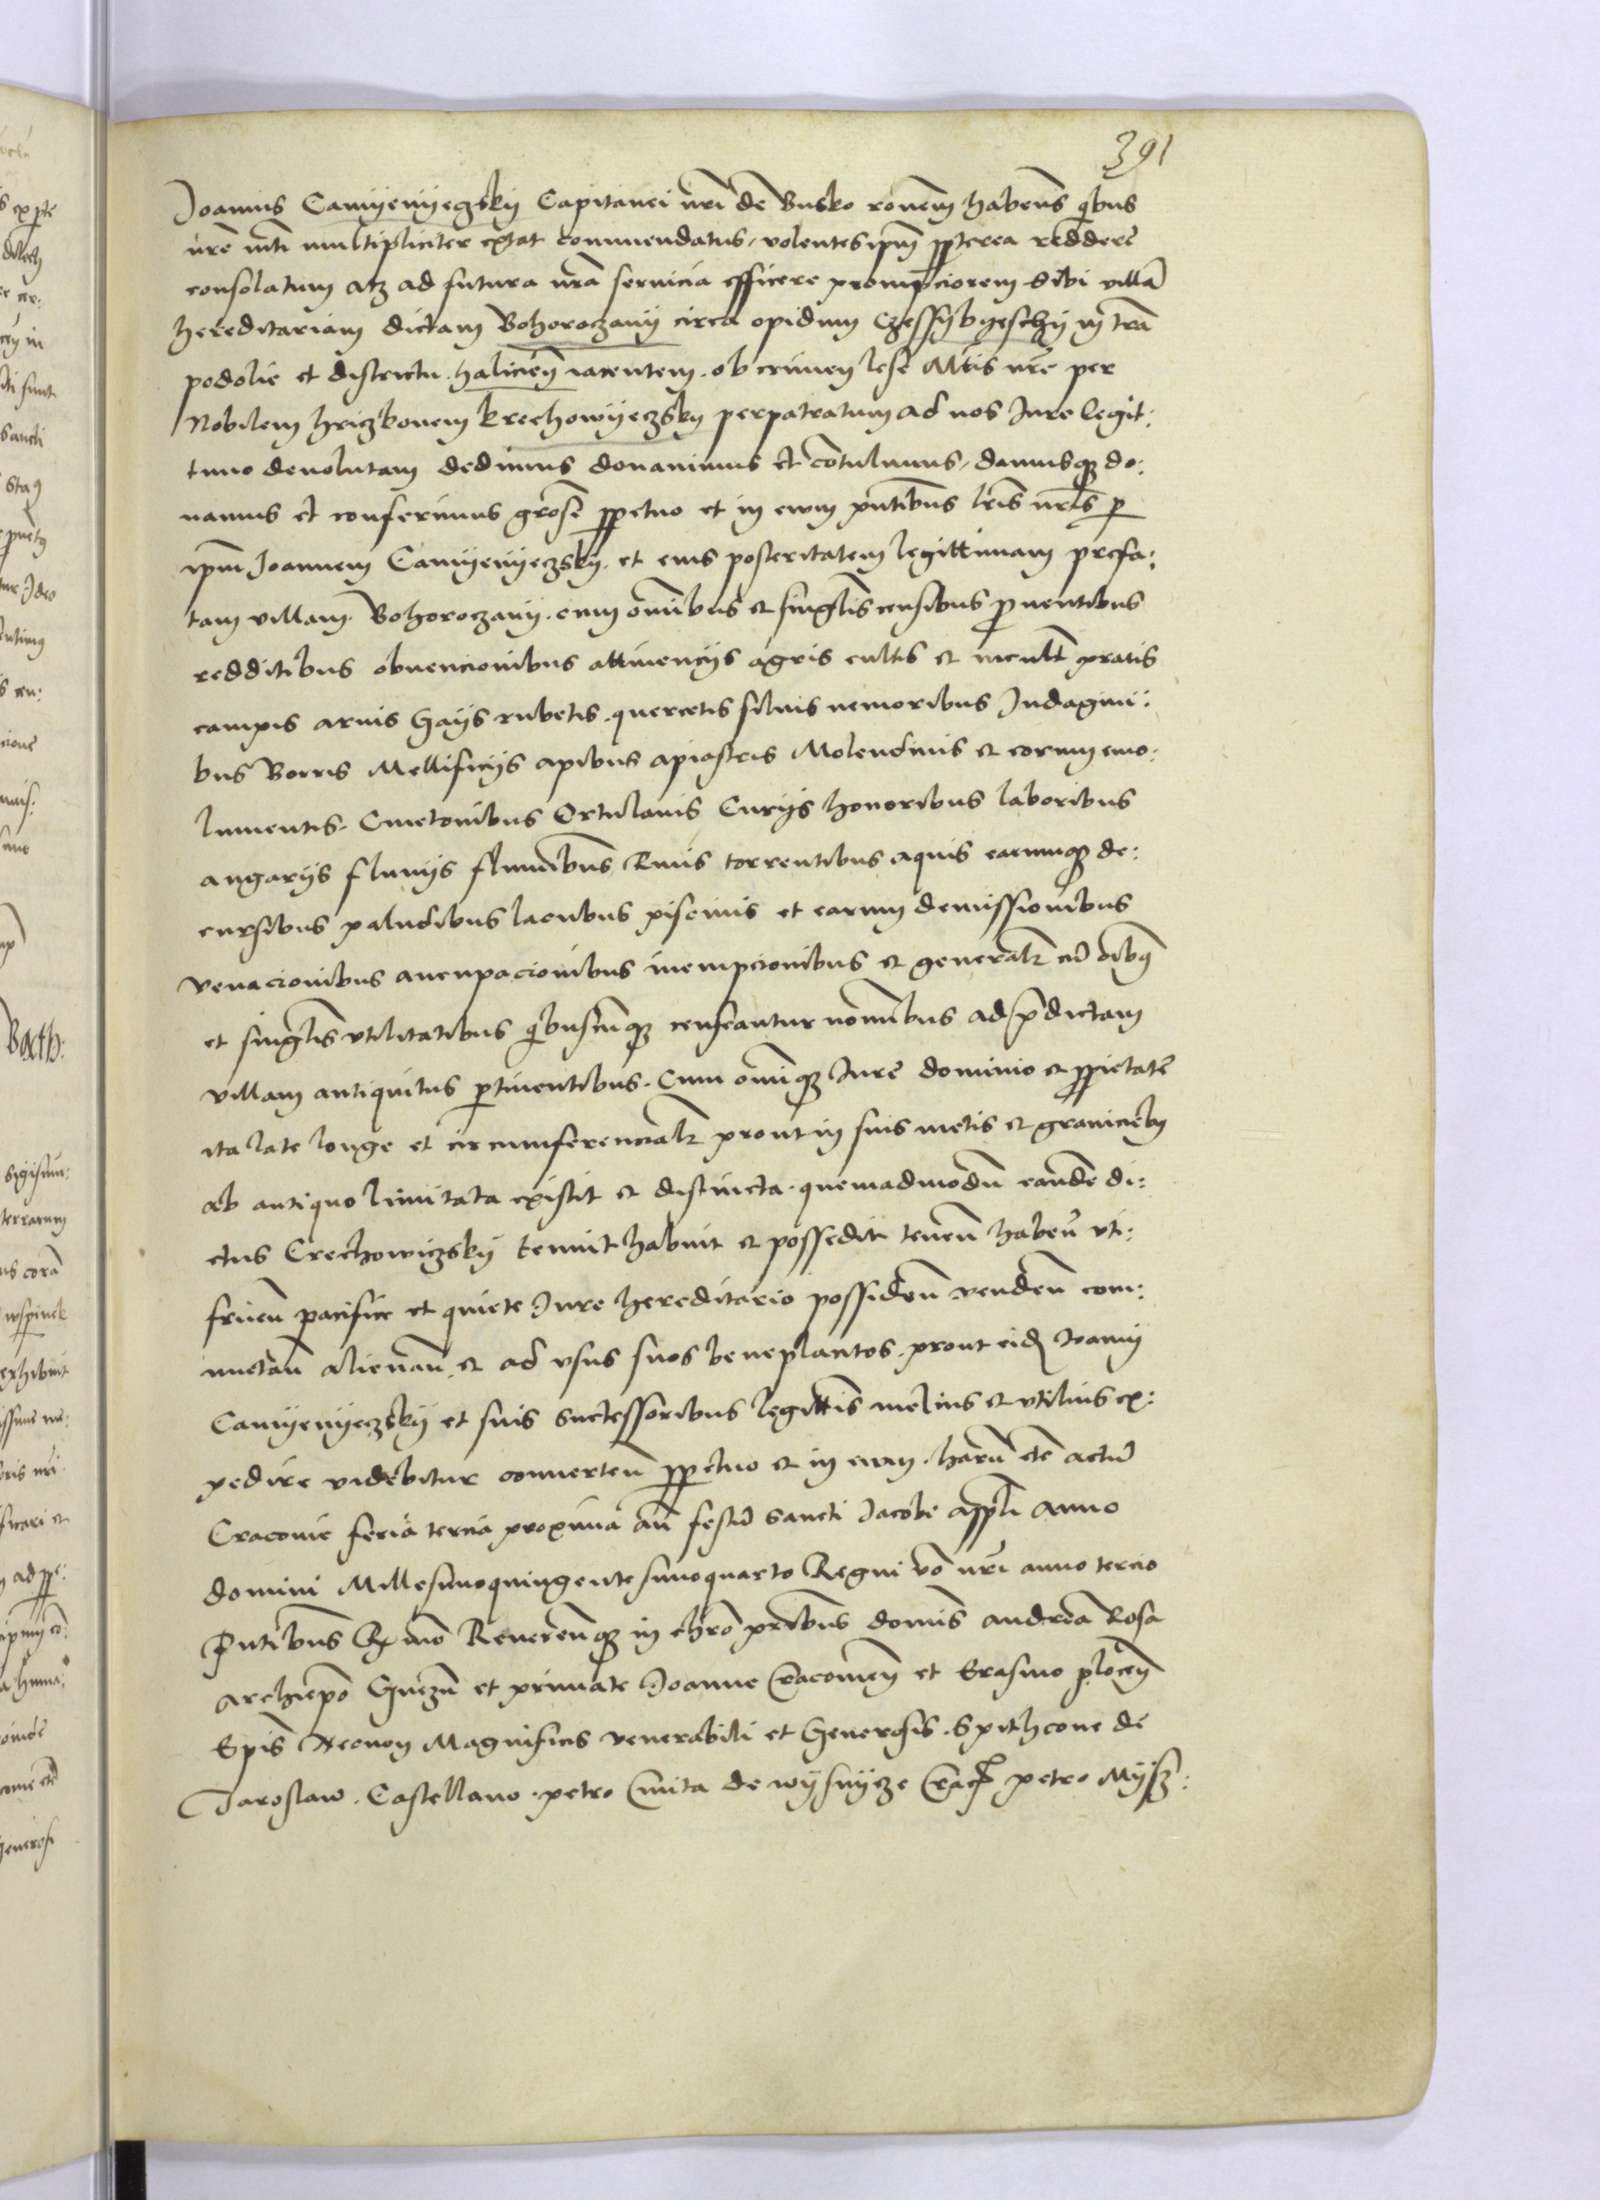 391
Joannis Camyenyeczsky Capitanei nri de Busko ronem habens qbus
nre mti multipliciter extat commendatus, volentes ipm ppterea reddere
consolatum atz ad futura nra seruicia efficere prompciorem sibi villa
hereditariam dictam Bohoroczany circa opidum Czessybyeschy in tra
podolie et districtu halicien iacentem. ob crimen lese Mtis nre per
Nobilem hriczkonem krechowyeczsky perpatratum ad nos Jure legit:
timo deuolutam dedimus donauimus et contulimus, damusq do:
namus et conferimus grose ppetuo et in ewm pntibus lris nris p
ipm Joannem Camyenyeczsky et eius posteritatem legittimam prefa:
tam villam Bohoroczany. cum omibus et singlis censibus prouentibus
redditibus obuencionibus attinencys agris cultis et incult pratis
campis aruis Gays rubetis quercetis siluis nemoribus Indagini:
bus Borris Mellificys apibus apiastris Molendinis et eorum emo:
lumentis. Cmetonibus Ortulanis Curys honoribus laboribus
angarys fluuys fluminibus Riuis torrentibus aquis earumq de:
cursibus paludibus lacubus piscinis et earum demissionibus
venacionibus aucupacionibus inempcionibus et generalr cu oibq
et singlis vtilitatibus qbuscumq censeantur nominibus ad predictam
villam antiquitus ptinentibus. Cum omiq Jure dominio et ppietate
ita late longe et circumferencialr prout in suis metis et granicieby
ab antiquo limitata existit et distincta. quemadmodu eande di:
ctus Crechowiczsky tenuit habuit et possedit tenen haben vti:
fruen pacifice et quiete Jure hereditario possiden venden com:
mutan alienan, et ad vsus suos beneplacitos. prout eid Joanni
Camyenyeczsky et suis successoribus legittis melius et vtilius ex:
pedire videbitur conuerten ppetuo et in ewm. haru etc actu
Cracouie feria tercia proxima an festu Sancti Jacobi appli Anno
domini Millesimoquingentesimoquarto Regni vo nri anno tercio
Pntibus Rx mo Reueren q in chro pribus domis andrea Rosa
archiepo Gnezn et primate Joanne Cracouien et Erasmo plocen
Epis Necnon Magnificis venerabili et Generosis. Spithcone de
Jaroslaw. Castellano. petro Cmita de wysnycze Crac p petro Mysz: